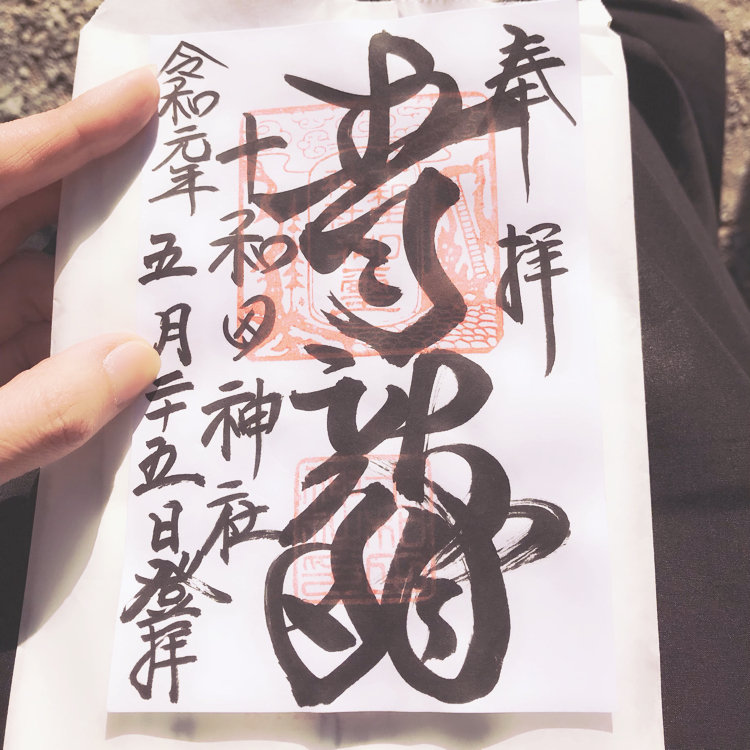 奉拝
青龍
十和田神社
令和元年五月二十五日登拝